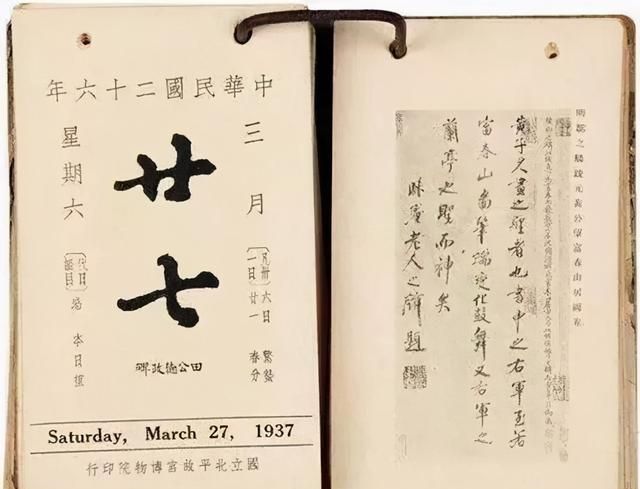 中華民國二十六年
三月
廿七
星期六
凡卅一日
六日驚蟄
廿一春分
代日韻目
本日
田公德政碑
Saturday, March 27, 1937
國立北平故宮博物院印行
明鄒之麟跋元黃公望富春山居圖卷
黃子久畫之聖者也書中之右軍至若
富春山啚筆端變化鼓舞又右軍之
蘭亭也聖而神矣
昧庵老人之麟題